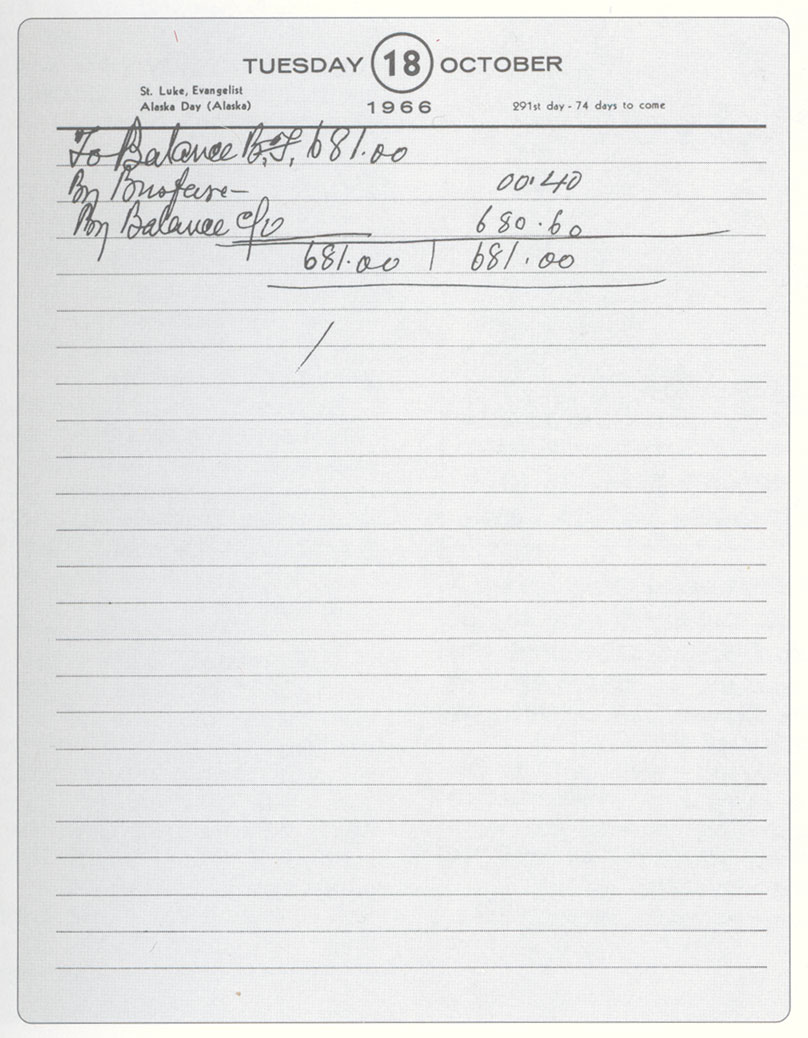 TUESDAY 18 OCTOBER
St. Luke, Evangelist
Alaska Day (Alaska)
1966
291st day - 74 days to come
To Balance B.F, 681.00
By Busfare— 00.40
By Balance c/o 680.60
681.00 | 681.00